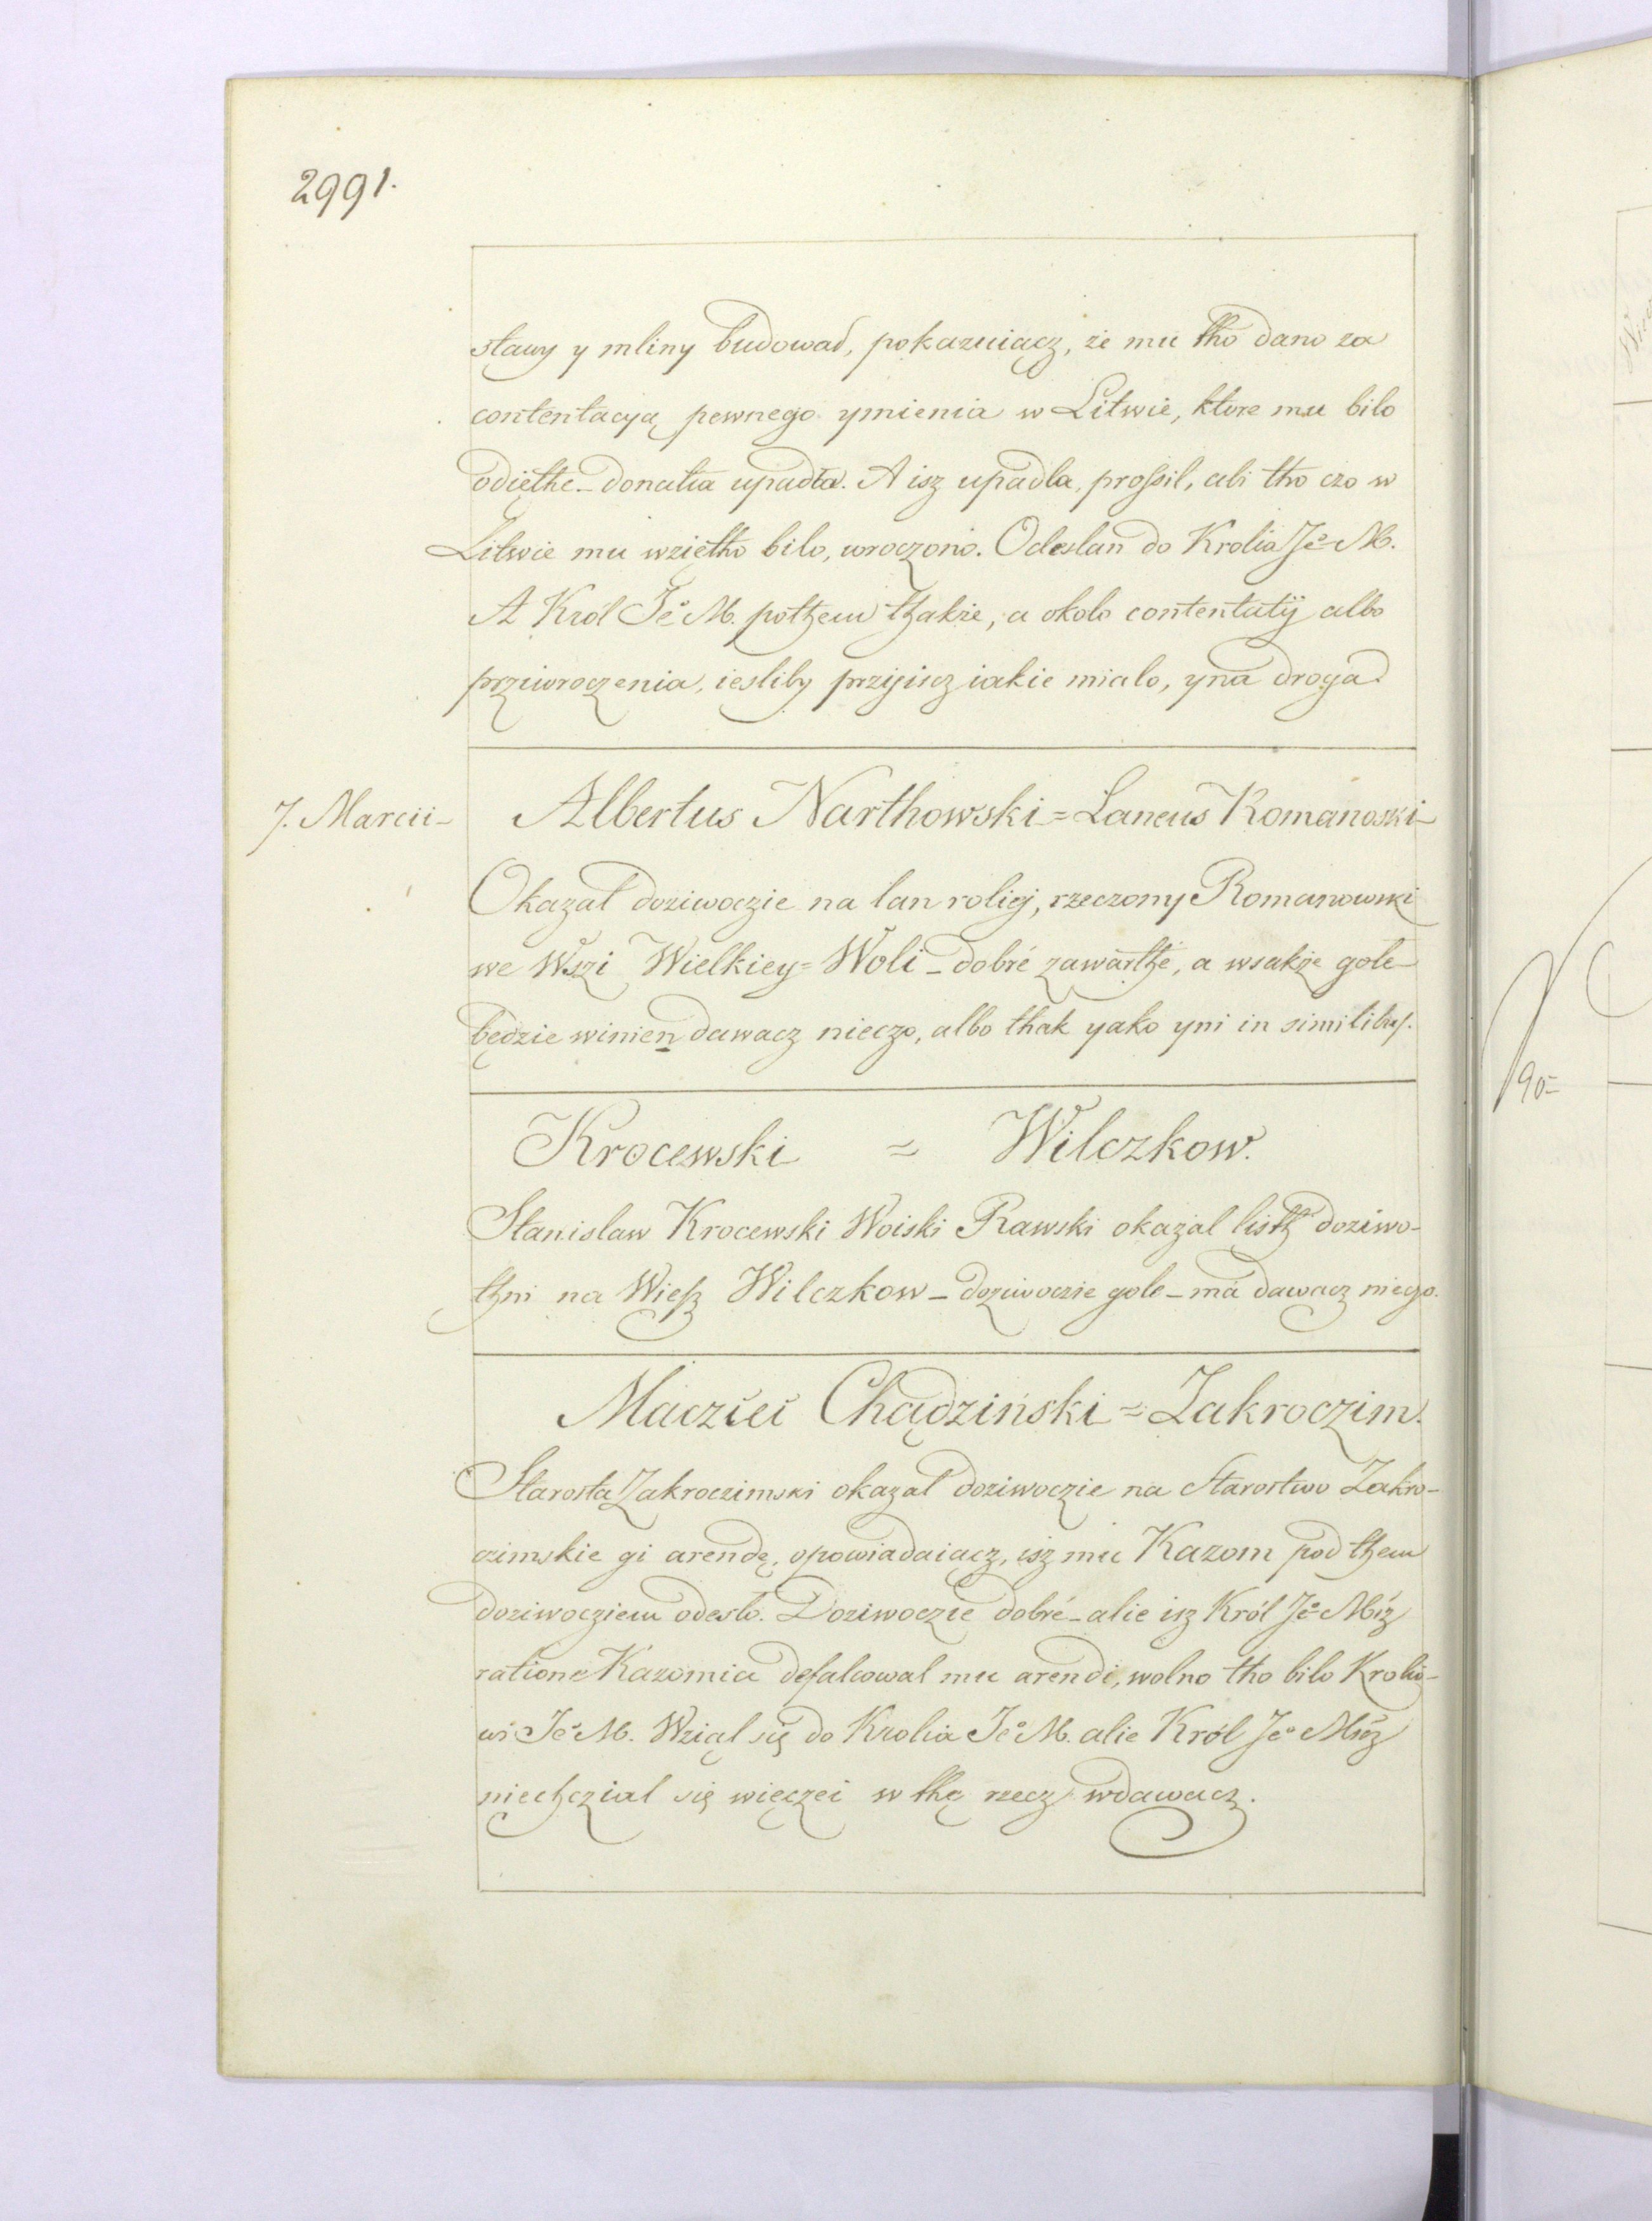 2991.
stawy y mliny budował, pokazuiącz, że mu tho dano za
contentacyą pewnego ymienia w Litwie, ktore mu bilo
odięthe – donatia upadła. A isz upadla, prossil, abi tho czo w
Litwie mu wziętho bilo, wroczono. Odeslan do Krolia Jeº M.
A Król Jeº M. pothem thakże, a okolo contentatÿ albo
prziwroczenia, iesliby przyiscz iakie mialo, yna droga.
7. Marcii –
Albertus Narthowski = Laneus Romanoski –
Okazał doziwoczie na lan roliej, rzeczony Romanowski
we Wszi Wielkiey = Woli – dobré zawarthé, a wsakże gole –
będzie winien dawacz nieczo, albo thak yako yni in similibus.
Krocewski = Wilczkow.
Stanislaw Krocewski Woiski Rawski okazal listh doziwo-
thni na Wiesz Wilczkow – doziwoczie gole – má dawacz niego.
Maczieÿ Chądziński = Zakroczim.
Starosta Zakroczimski okazał doziwoczie na Starostwo Zakro-
czimskie gi arendę, opowiadaiącz, isz mu Kazom pod them
doziwocziem odesło. Doziwoczie dobré – alie isz Król Jeº Mśz
ratione Kazomia defalcowal mu arendi, wolno tho bilo Krolio-
wi Jeº M. Wziął się do Krolia Jeº M. alie Król Jeº Mśz
niechczial się więczei w thę rzecz wdawacz.
90 –